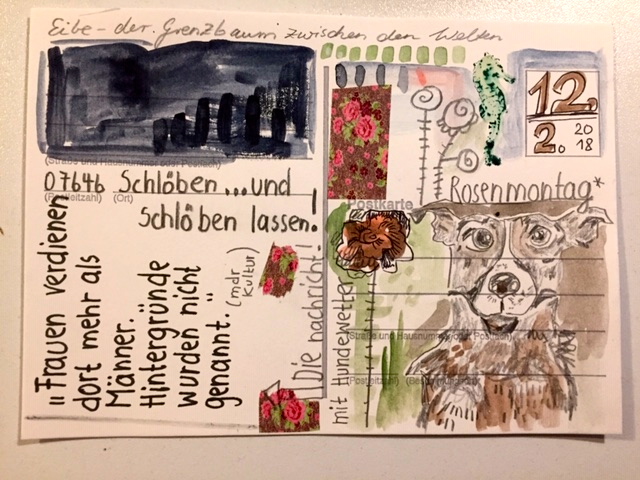 Eibe - der Grenzbaum zwischen den Welten
(Straße und Hausnummer oder Postfach)
07646 Schlöben...und
(Postleitzahl) (Ort)
Schlöben lassen!
"Frauen verdienen
dort mehr als
Männer.
Hintergründe
wurden nicht
genannt."
(mdr
Kultur)
Die Nachricht!
12.
2. 20
18
Rosenmontag*
Postkarte
mit Hundewetter
(Straße und Hausnummer oder Postfach)
(Postleitzahl)